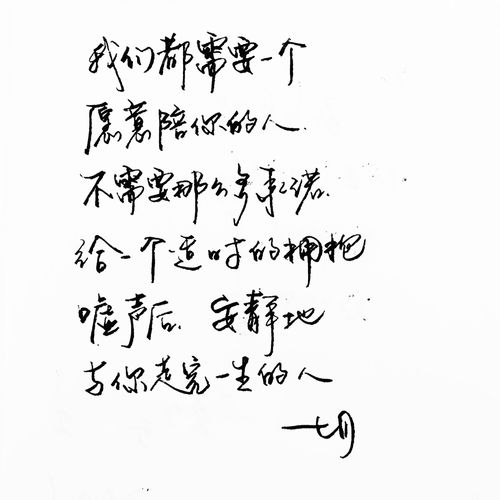 我们都需要一个
愿意陪你的人.
不需要那么多承诺.
给一个适时的拥抱
嘘声后. 安静地
与你走完一生的人
一七月